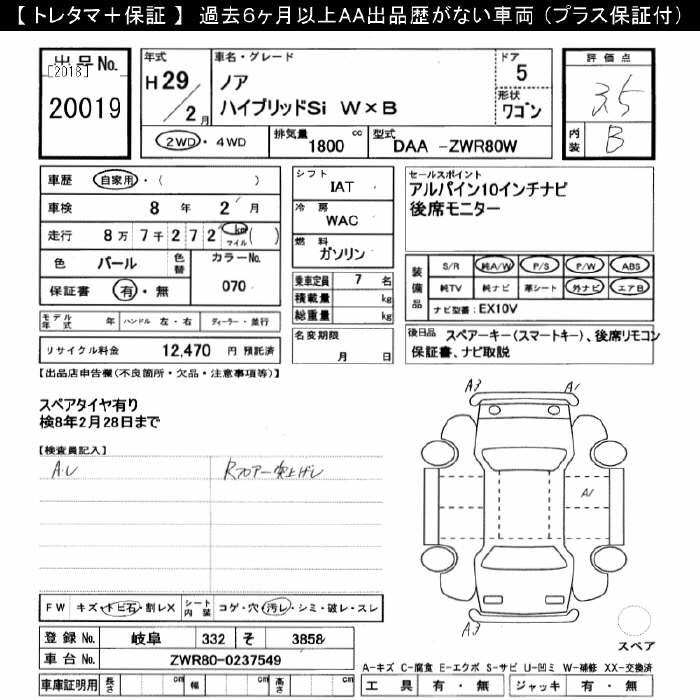 【 トレタマ＋保証 】 過去６ヶ月以上ＡＡ出品歴がない車両（プラス保証付）
出品No. [2018] 20019
年式 H29/2月
車名・グレード ノア ハイブリッドSi W×B
ドア 5
形状 ワゴン
評価点 3.5
内装 B
2WD・4WD
排気量 1800 cc
型式 DAA -ZWR80W
車歴 自家用・( )
車検 8 年 2 月
走行 8万 7千 2 7 2 km マイル ( )
色 パール 色替 カラーNo. 070
保証書 有・無
モデル年式 年 ハンドル 左・右 ディーラー・並行
リサイクル料金 12,470 円 預託済
シフト IAT
冷房 WAC
燃料 ガソリン
乗車定員 7 名
積載量 kg
総重量 kg
名変期限 月 日
セールスポイント
アルパイン10インチナビ
後席モニター
装備品 S/R 純A/W P/S P/W ABS
純TV 純ナビ 革シート 外ナビ エアB
ナビ型番: EX10V
後日品 スペアーキー(スマートキー)、後席リモコン
保証書、ナビ取説
【出品店申告欄(不良箇所・欠品・注意事項等)】
スペアタイヤ有り
検8年2月28日まで
【検査員記入】
A.U Rフロアー突上げU
A3 A1
A1
A3
スペア
FW キズ・トビ石・割レX シート内装 コゲ・穴・汚レ・シミ・破レ・スレ
登録No. 岐阜 332 そ 3858
車台No. ZWR80-0237549
A-キズ C-腐食 E-エクボ S-サビ U-凹ミ W-補修 XX-交換済
車庫証明用 長さ cm 幅 cm 高さ cm
工具 有・無 ジャッキ 有・無